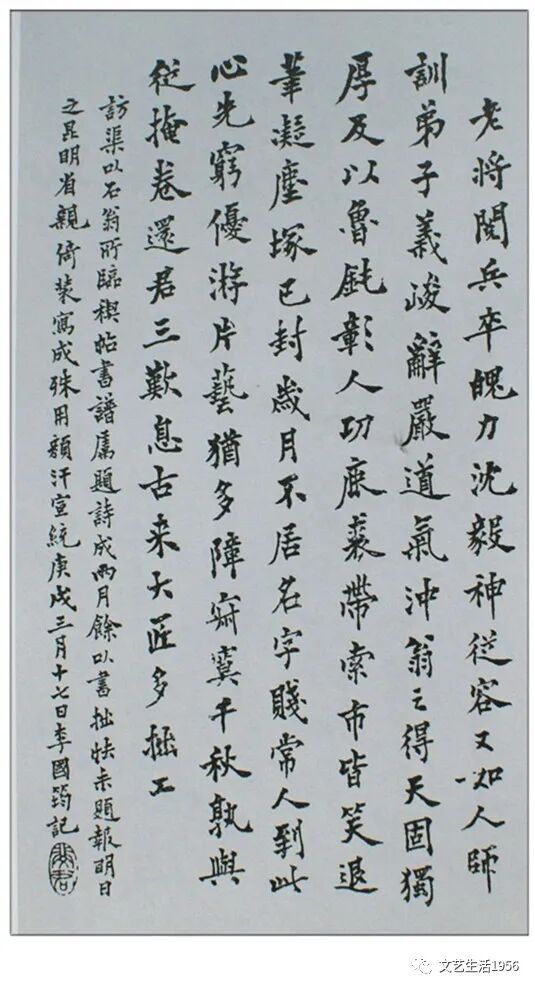 老将閱兵卒魄力沈毅神從容又如人師
訓弟子義峻辭嚴道氣沖翁之得天固獨
厚及以魯鈍彰人功鹿裘帶索市皆笑退
筆凝塵塚已封歲月不居名字賤常人到此
心先窮優游片藝猶多障寂寞千秋孰與
從掩卷還君三歎息古来大匠多拙工
訪渠以石翁所臨禊帖書譜屬題詩成兩月餘以書拙怯未題報明日
之昆明省親倚裝寫成殊用顏汗宣統庚戌三月十七日李國筠記
文艺生活1956